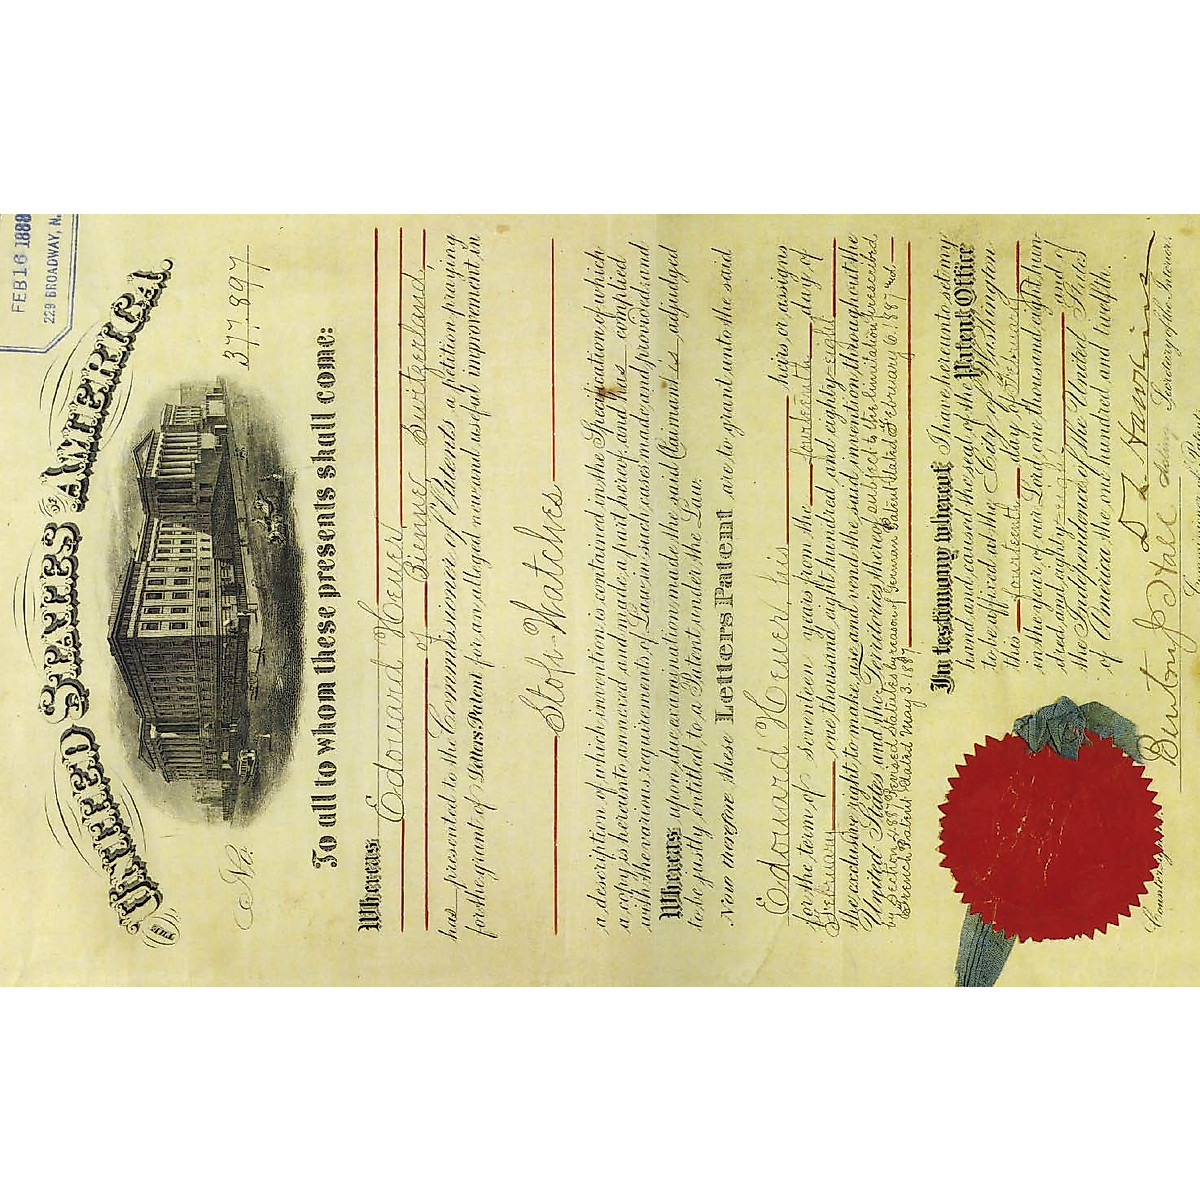 FEB 16 1888
229 BROADWAY, N.
THE UNITED STATES OF AMERICA
No. 377,897
To all to whom these presents shall come:
Whereas Edouard Heuer,
of Bienne, Switzerland,
has presented to the Commissioner of Patents a petition praying
for the grant of Letters Patent for an alleged new and useful improvement in
Stop-Watches
a description of which invention is contained in the Specification of which
a copy is hereunto annexed and made a part hereof, and has complied
with the various requirements of Law in such cases made and provided, and
Whereas upon due examination made the said Claimant is adjudged
to be justly entitled to a Patent under the Law.
Now therefore these Letters Patent are to grant unto the said
Edouard Heuer, his heirs or assigns
for the term of seventeen years from the fourteenth day of
February one thousand eight hundred and eighty-eight
the exclusive right to make, use and vend the said invention throughout the
United States and the Territories thereof, subject to the limitation prescribed
by Section 4887, Revised Statutes by reason of German Patent dated February 6. 1887 and
French Patent dated May 3. 1887
In testimony whereof I have hereunto set my
hand and caused the seal of the Patent Office
to be affixed at the City of Washington
this fourteenth day of February
in the year of our Lord one thousand eight hun-
dred and eighty-eight and of
the Independence of the United States
of America the one hundred and twelfth.
D. L. Hawkins
Acting Secretary of the Interior.
Countersigned
Benton J. Hall